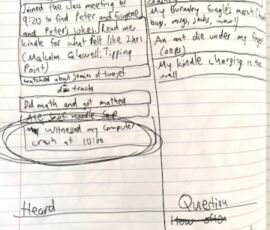 Joined the class meeting @
9:20 to find Peter and Eugene
and Peter's jokes. Read me
kindle for what felt like 2hrs
(Malcolm Gladwell: Tipping
Point)
watched about
tracks
Did math and got mathed
Ate beef noodle
witnessed my computer
crash at 10:00
My Burnaby Eagle's merch (
bags, mugs, jacks,
An ant die under my finger
(oops)
My kindle charging in the
wall
Heard
Question
How often